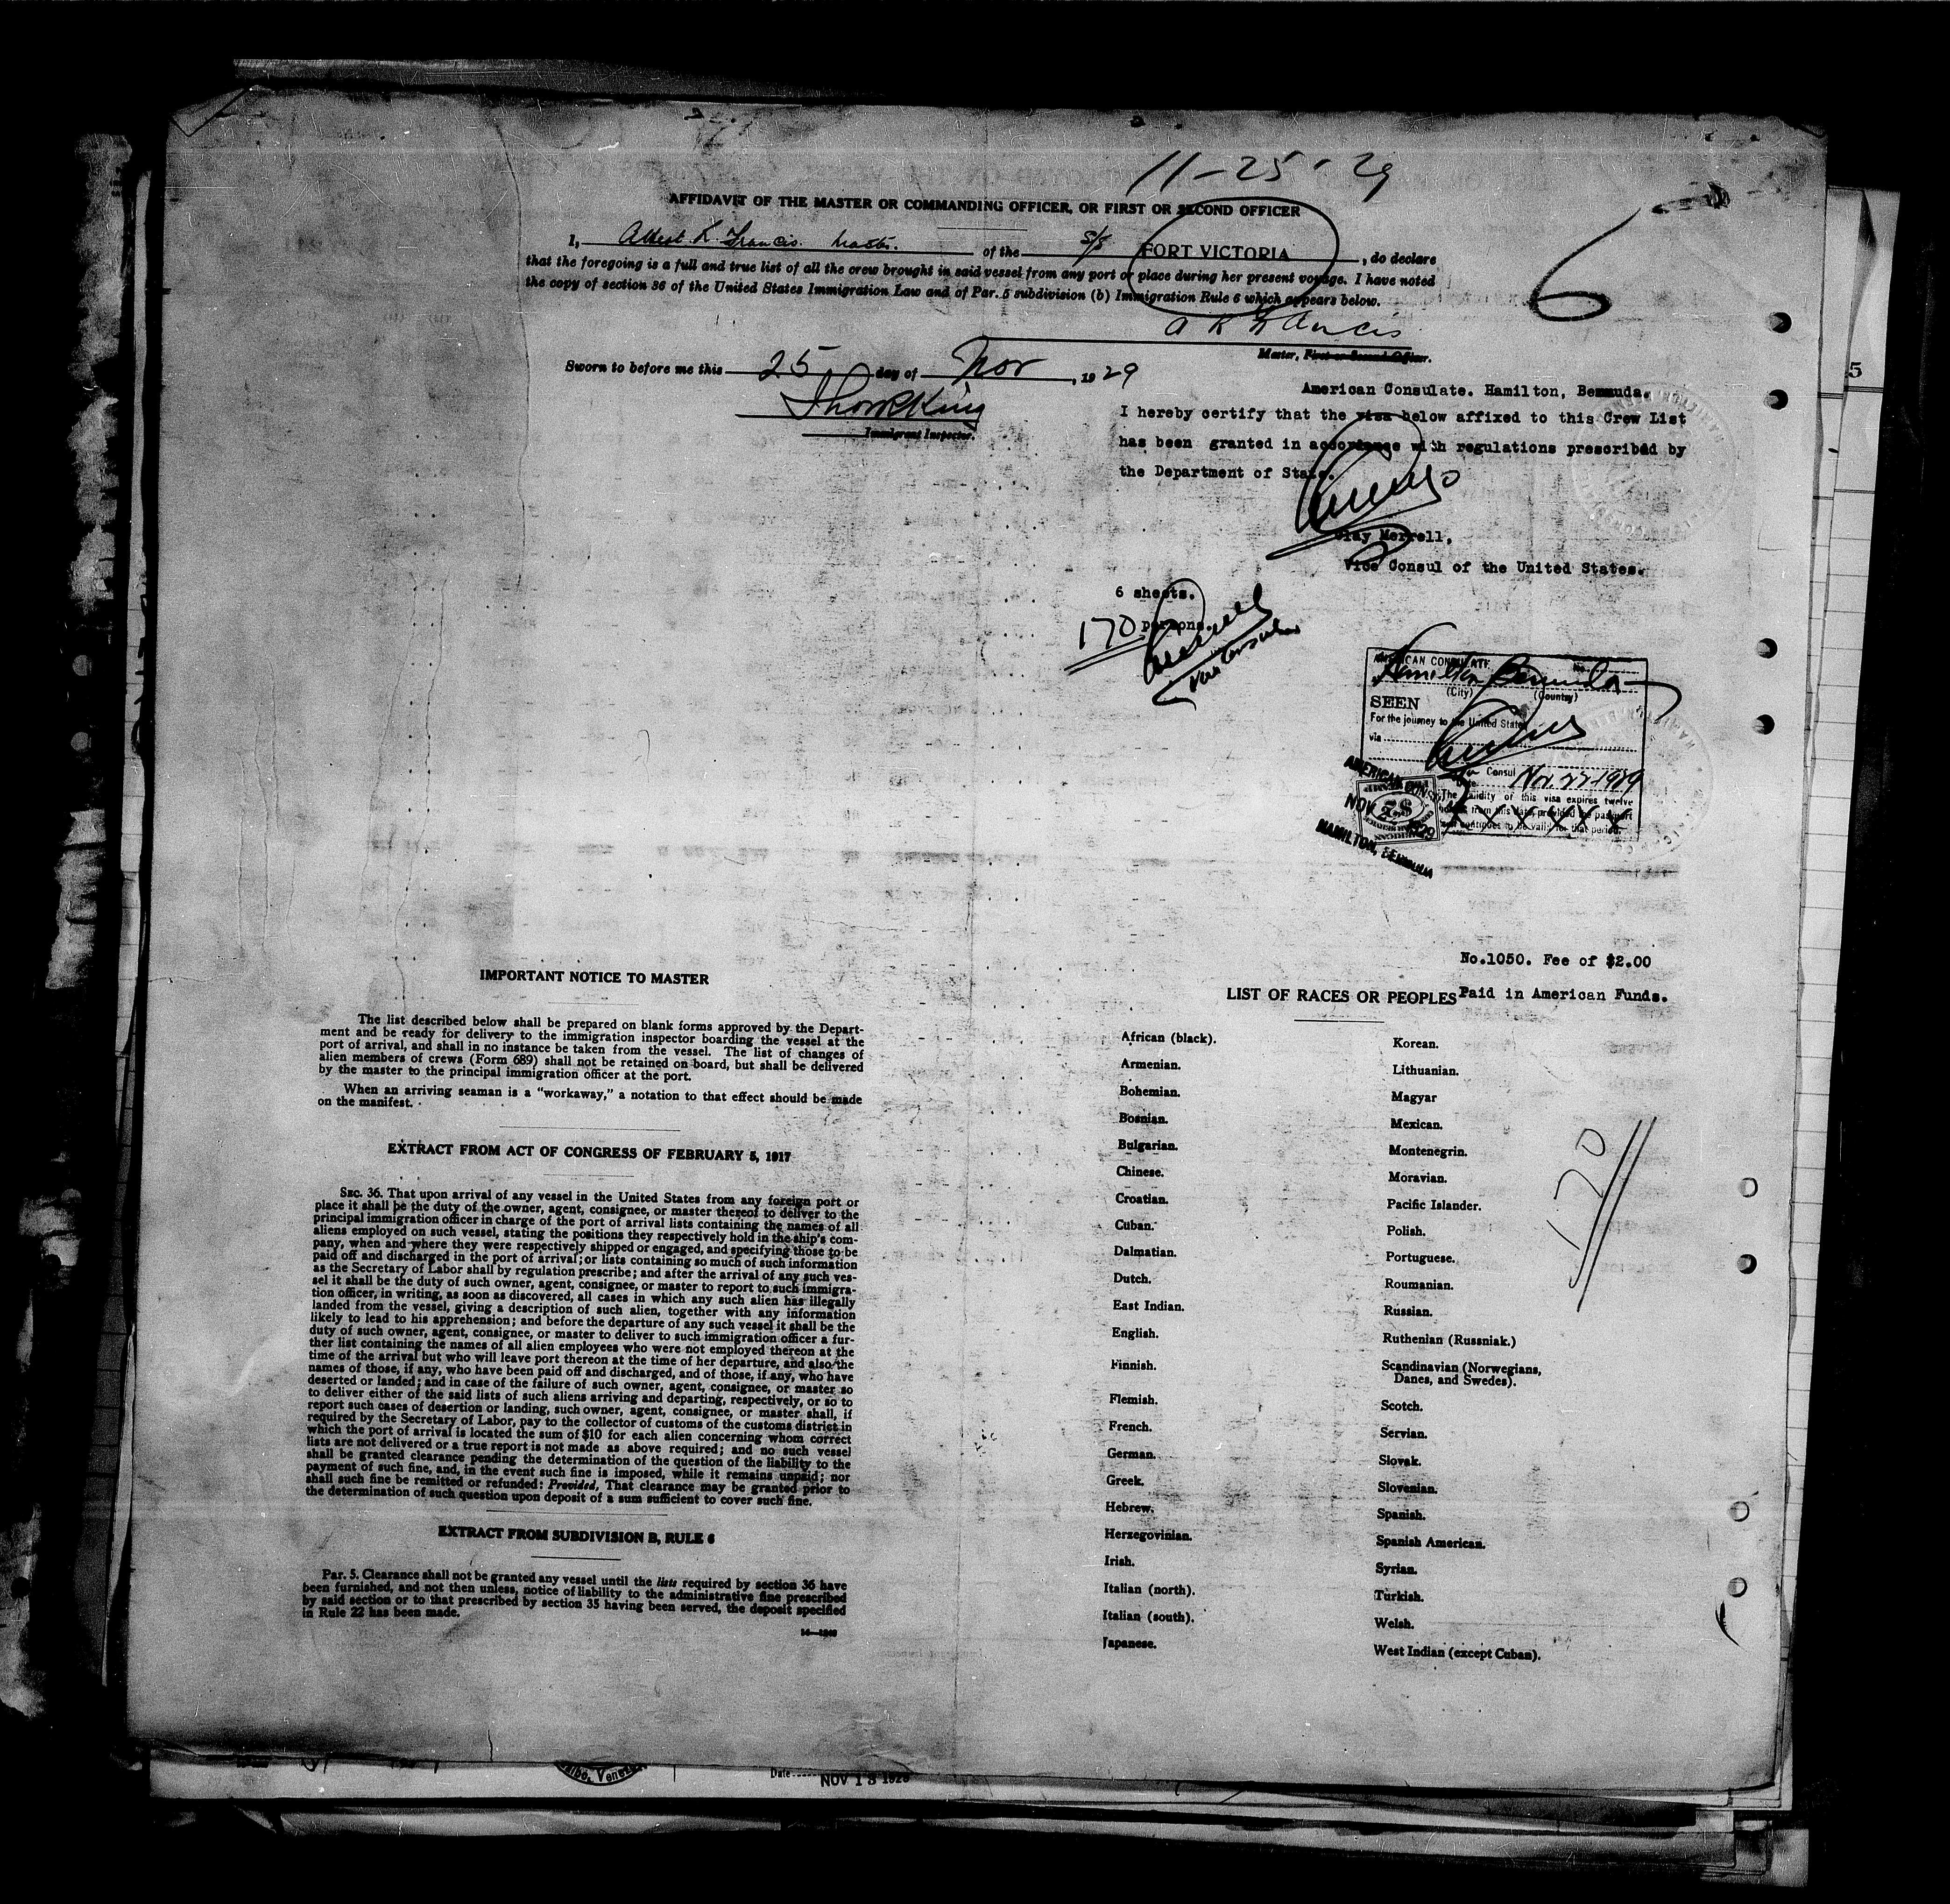 11-25-29
AFFIDAVIT OF THE MASTER OR COMMANDING OFFICER, OR FIRST OR SECOND OFFICER
I, Albert R. Francis. Master. of the S/S FORT VICTORIA, do declare
that the foregoing is a full and true list of all the crew brought in said vessel from any port or place during her present voyage. I have noted
the copy of section 36 of the United States Immigration Law and of Par. 5 subdivision (b) Immigration Rule 6 which appears below.
6
A R Francis
Master, First or Second Officer.
Sworn to before me this 25 day of Nov, 1929
Immigrant Inspector.
American Consulate. Hamilton, Bermuda.
I hereby certify that the visa below affixed to this Crew List
has been granted in accordance with regulations prescribed by
the Department of State.
Clay Merrell,
Vice Consul of the United States.
6 sheets.
170 persons.
Vice Consul
AMERICAN CONSULATE No.
Hamilton Bermuda
(City) (Country)
SEEN
For the journey to the United States
via
Consul
Date Nov. 22-1929
The validity of this visa expires twelve
months from this date, provided the passport
continues to be valid for that period.
AMERICAN CONSULATE
NOV 22 1929
HAMILTON, BERMUDA
No.1050. Fee of $2.00
Paid in American Funds.
IMPORTANT NOTICE TO MASTER
The list described below shall be prepared on blank forms approved by the Depart-
ment and be ready for delivery to the immigration inspector boarding the vessel at the
port of arrival, and shall in no instance be taken from the vessel. The list of changes of
alien members of crews (Form 689) shall not be retained on board, but shall be delivered
by the master to the principal immigration officer at the port.
When an arriving seaman is a “workaway,” a notation to that effect should be made
on the manifest.
EXTRACT FROM ACT OF CONGRESS OF FEBRUARY 5, 1917
SEC. 36. That upon arrival of any vessel in the United States from any foreign port or
place it shall be the duty of the owner, agent, consignee, or master thereof to deliver to the
principal immigration officer in charge of the port of arrival lists containing the names of all
aliens employed on such vessel, stating the positions they respectively hold in the ship's com-
pany, when and where they were respectively shipped or engaged, and specifying those to be
paid off and discharged in the port of arrival; or lists containing so much of such information
as the Secretary of Labor shall by regulation prescribe; and after the arrival of any such ves-
sel it shall be the duty of such owner, agent, consignee, or master to report to such immigra-
tion officer, in writing, as soon as discovered, all cases in which any such alien has illegally
landed from the vessel, giving a description of such alien, together with any information
likely to lead to his apprehension; and before the departure of any such vessel it shall be the
duty of such owner, agent, consignee, or master to deliver to such immigration officer a fur-
ther list containing the names of all alien employees who were not employed thereon at the
time of the arrival but who will leave port thereon at the time of her departure, and also the
names of those, if any, who have been paid off and discharged, and of those, if any, who have
deserted or landed; and in case of the failure of such owner, agent, consignee, or master so
to deliver either of the said lists of such aliens arriving and departing, respectively, or so to
report such cases of desertion or landing, such owner, agent, consignee, or master shall, if
required by the Secretary of Labor, pay to the collector of customs of the customs district in
which the port of arrival is located the sum of $10 for each alien concerning whom correct
lists are not delivered or a true report is not made as above required; and no such vessel
shall be granted clearance pending the determination of the question of the liability to the
payment of such fine, and, in the event such fine is imposed, while it remains unpaid; nor
shall such fine be remitted or refunded: Provided, That clearance may be granted prior to
the determination of such question upon deposit of a sum sufficient to cover such fine.
EXTRACT FROM SUBDIVISION B, RULE 6
Par. 5. Clearance shall not be granted any vessel until the lists required by section 36 have
been furnished, and not then unless, notice of liability to the administrative fine prescribed
by said section or to that prescribed by section 35 having been served, the deposit specified
in Rule 22 has been made.
LIST OF RACES OR PEOPLES
African (black).
Armenian.
Bohemian.
Bosnian.
Bulgarian.
Chinese.
Croatian.
Cuban.
Dalmatian.
Dutch.
East Indian.
English.
Finnish.
Flemish.
French.
German.
Greek.
Hebrew.
Herzegovinian.
Irish.
Italian (north).
Italian (south).
Japanese.
Korean.
Lithuanian.
Magyar
Mexican.
Montenegrin.
Moravian.
Pacific Islander.
Polish.
Portuguese.
Roumanian.
Russian.
Ruthenian (Russniak.)
Scandinavian (Norwegians,
Danes, and Swedes).
Scotch.
Servian.
Slovak.
Slovenian.
Spanish.
Spanish American.
Syrian.
Turkish.
Welsh.
West Indian (except Cuban).
170
Date NOV 13 1929
5